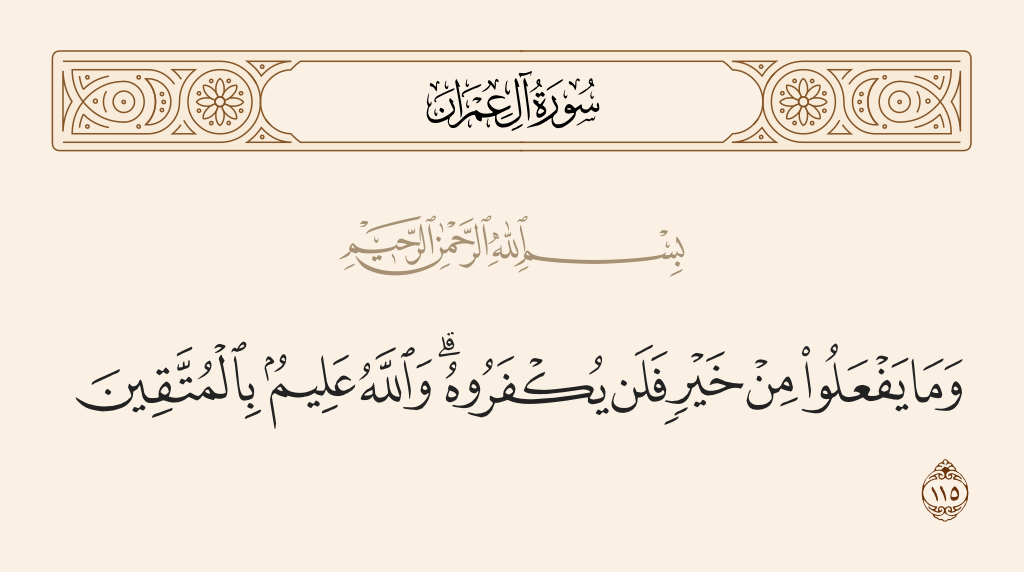 سُورَةُ آلِ عِمْرَانَ
بِسْمِ ٱللَّهِ ٱلرَّحْمَٰنِ ٱلرَّحِيمِ
وَمَا يَفْعَلُوا۟ مِنْ خَيْرٍ فَلَن يُكْفَرُوهُ ۗ وَٱللَّهُ عَلِيمٌۢ بِٱلْمُتَّقِينَ
١١٥